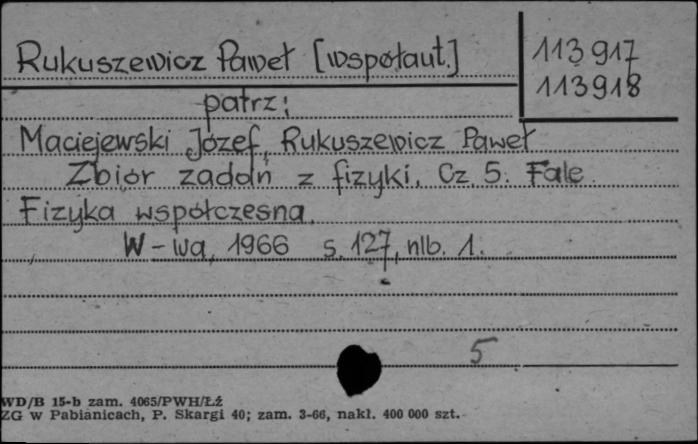 Rukuszewicz Paweł [współaut.]
113 917
113918
patrz:
Maciejewski Józef, Rukuszewicz Paweł
Zbiór zadań z fizyki. Cz. 5. Fale.
Fizyka współczesna.
W-wa, 1966 s. 127, nlb. 1.
5
WD/B 15-b zam. 4065/PWH/Łź
ZG w Pabianicach, P. Skargi 40; zam. 3-66, nakł. 400 000 szt.